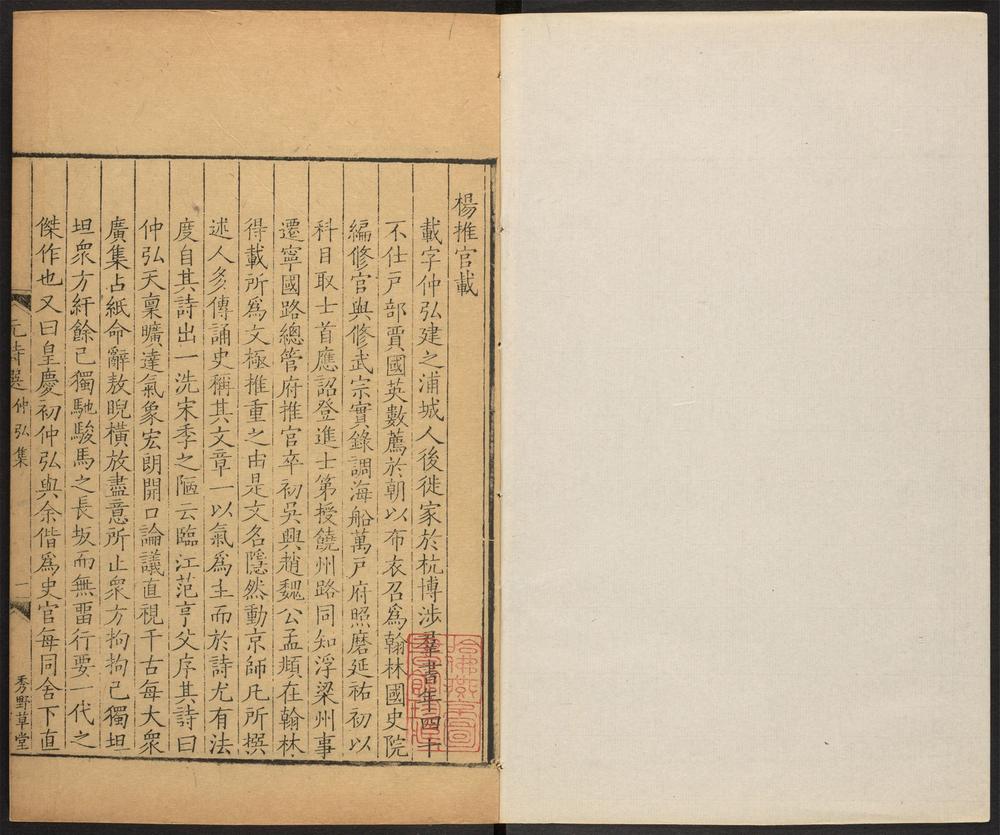 楊推官載
載字仲弘建之浦城人後徙家於杭博涉羣書年四十
不仕戸部賈國英數薦於朝以布衣召爲翰林國史院
編修官與修武宗實錄調海船萬戸府照磨延祐初以
科目取士首應詔登進士第授饒州路同知浮梁州事
遷寧國路總管府推官卒初吳興趙魏公孟頫在翰林
得載所爲文極推重之由是文名隱然動京師凡所撰
述人多傳誦史稱其文章一以氣爲主而於詩尤有法
度自其詩出一洗宋季之陋云臨江范亨父序其詩曰
仲弘天稟曠達氣象宏朗開口論議直視千古每大衆
廣集占紙命辭敖睨橫放盡意所止衆方拘拘己獨坦
坦衆方紆餘己獨馳駿馬之長坂而無畱行要一代之
傑作也又曰皇慶初仲弘與余偕爲史官每同舍下直
元詩選 仲弘集 一 秀野草堂